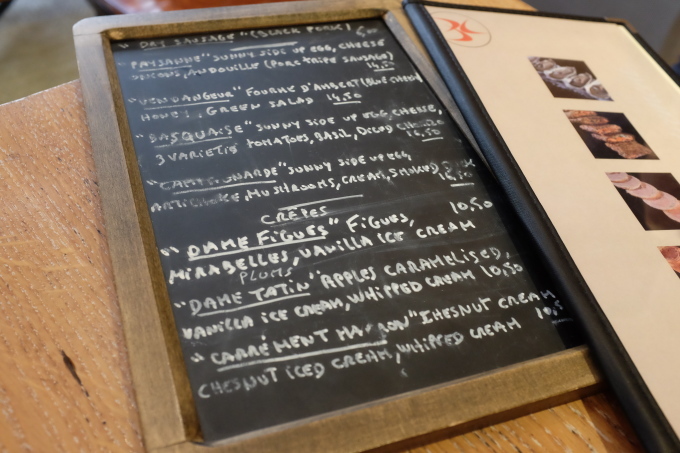 " DRY SAUSAGE " (BLACK PORK)
" PAYSANNE " SUNNY SIDE UP EGG, CHEESE
ONIONS, ANDOUILLE (PORK TRIPE SAUSAGE)
14.50
" VENDANGEUR " FOURME D'AMBERT (BLUE CHEESE
HONEY, GREEN SALAD 14,50
" BASQUAISE " SUNNY SIDE UP EGG, CHEESE,
3 VARIETIES TOMATOES, BASIL, DRIED
16.50
" CAMPAGNARDE " SUNNY SIDE UP EGG,
ARTICHOKE, MUSHROOMS, CREAM, SMOKED
CRÊPES
" DAME FIGUES " FIGUES, 10,50
MIRABELLES, VANILLA ICE CREAM
PLUMS
" DAME TATIN " APPLES CARAMELISED,
VANILLA ICE CREAM, WHIPPED CREAM 10,50
" CARRÉMENT MARRON " CHESNUT CREAM,
CHESNUT ICED CREAM, WHIPPED CREAM